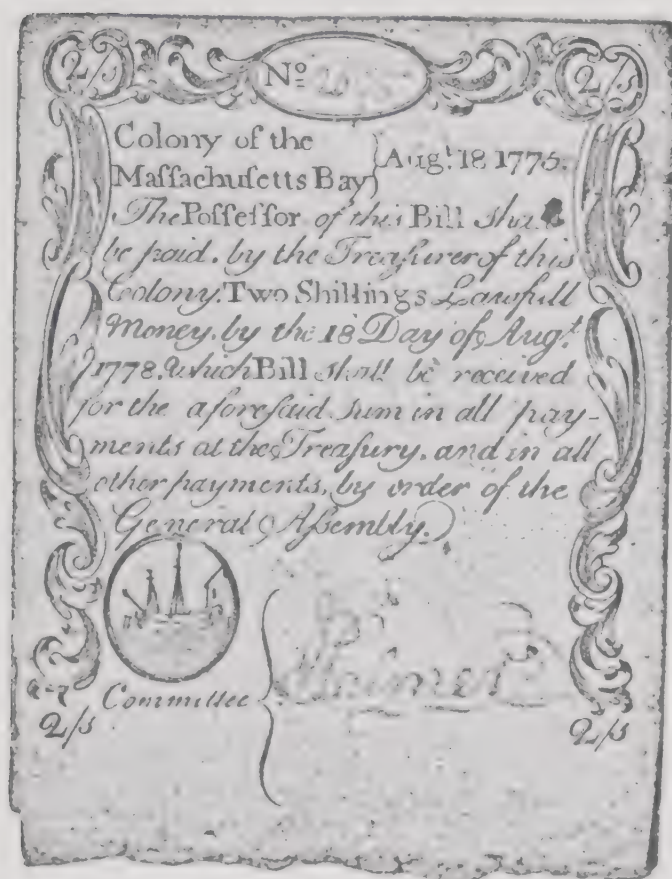 2/s Nº 2/s
Colony of the
Maſsachuſetts Bay } Augᵗ. 18 1775.
The Poſseſsor of this Bill shall
be paid, by the Treaſurer of this
Colony, Two Shillings Lawfull
Money, by the 18 Day of Augᵗ.
1778. Which Bill shall be received
for the aforeſaid sum in all pay-
ments at the Treaſury, and in all
other payments, by order of the
General Aſsembly.
Committee {
2/s 2/s